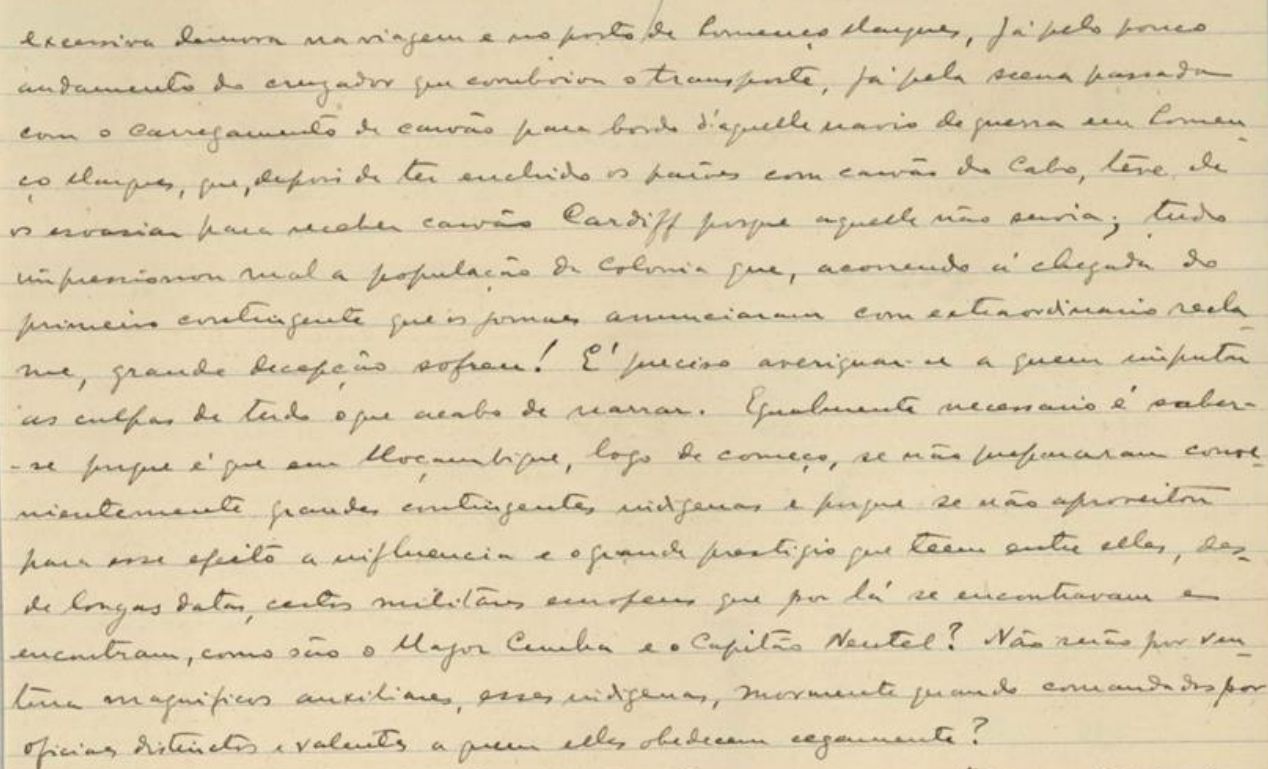 excessiva demora na viagem e no porto de Lourenço Marques, já pelo pouco
andamento do cruzador que comboiou o transporte, já pela scena passada
com o carregamento de carvão para bordo d'aquelle navio de guerra em Louren-
ço Marques, que, depois de ter enchido os paioes com carvão do Cabo, têve de
os esvasiar para receber carvão Cardiff porque aquelle não servia; tudo
impressionou mal a população da Colonia que, acorrendo á chegada do
primeiro contingente que os jornaes annunciaram com extraordinario recla-
me, grande decepção sofreu! E' preciso averiguar-se a quem imputar
as culpas de tudo o que acabo de narrar. Egualmente necessario é saber-
-se porque é que em Moçambique, logo de começo, se não prepararam conve-
nientemente grandes contingentes indigenas e porque se não aproveitou
para esse efeito a influencia e o grande prestigio que teem entre elles, des-
de longas datas, certos militares europeus que por lá se encontravam e
encontram, como são o Major Cunha e o Capitão Neutel? Não serão por ven-
tura magnificos auxiliares, esses indigenas, mormente quando comandados por
oficiaes distinctos e valentes a quem elles obedecem cegamente?